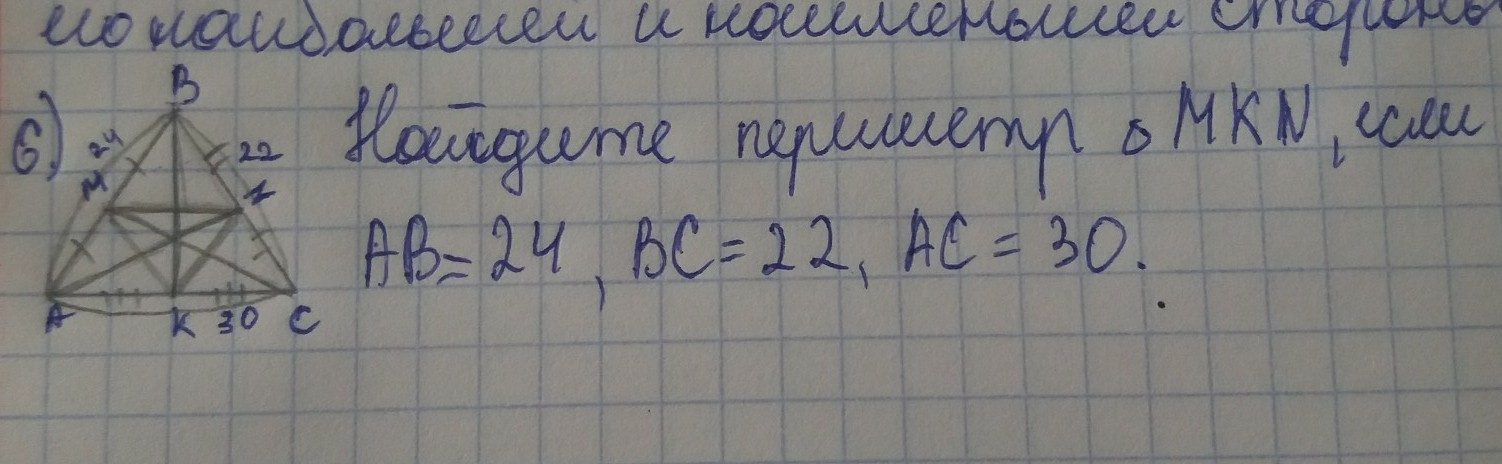 но наибольшей и наименьшей стороны
6) Найдите периметр △ MKN, если
AB = 24, BC = 22, AC = 30.
B
24
22
M
N
A
K
30
C